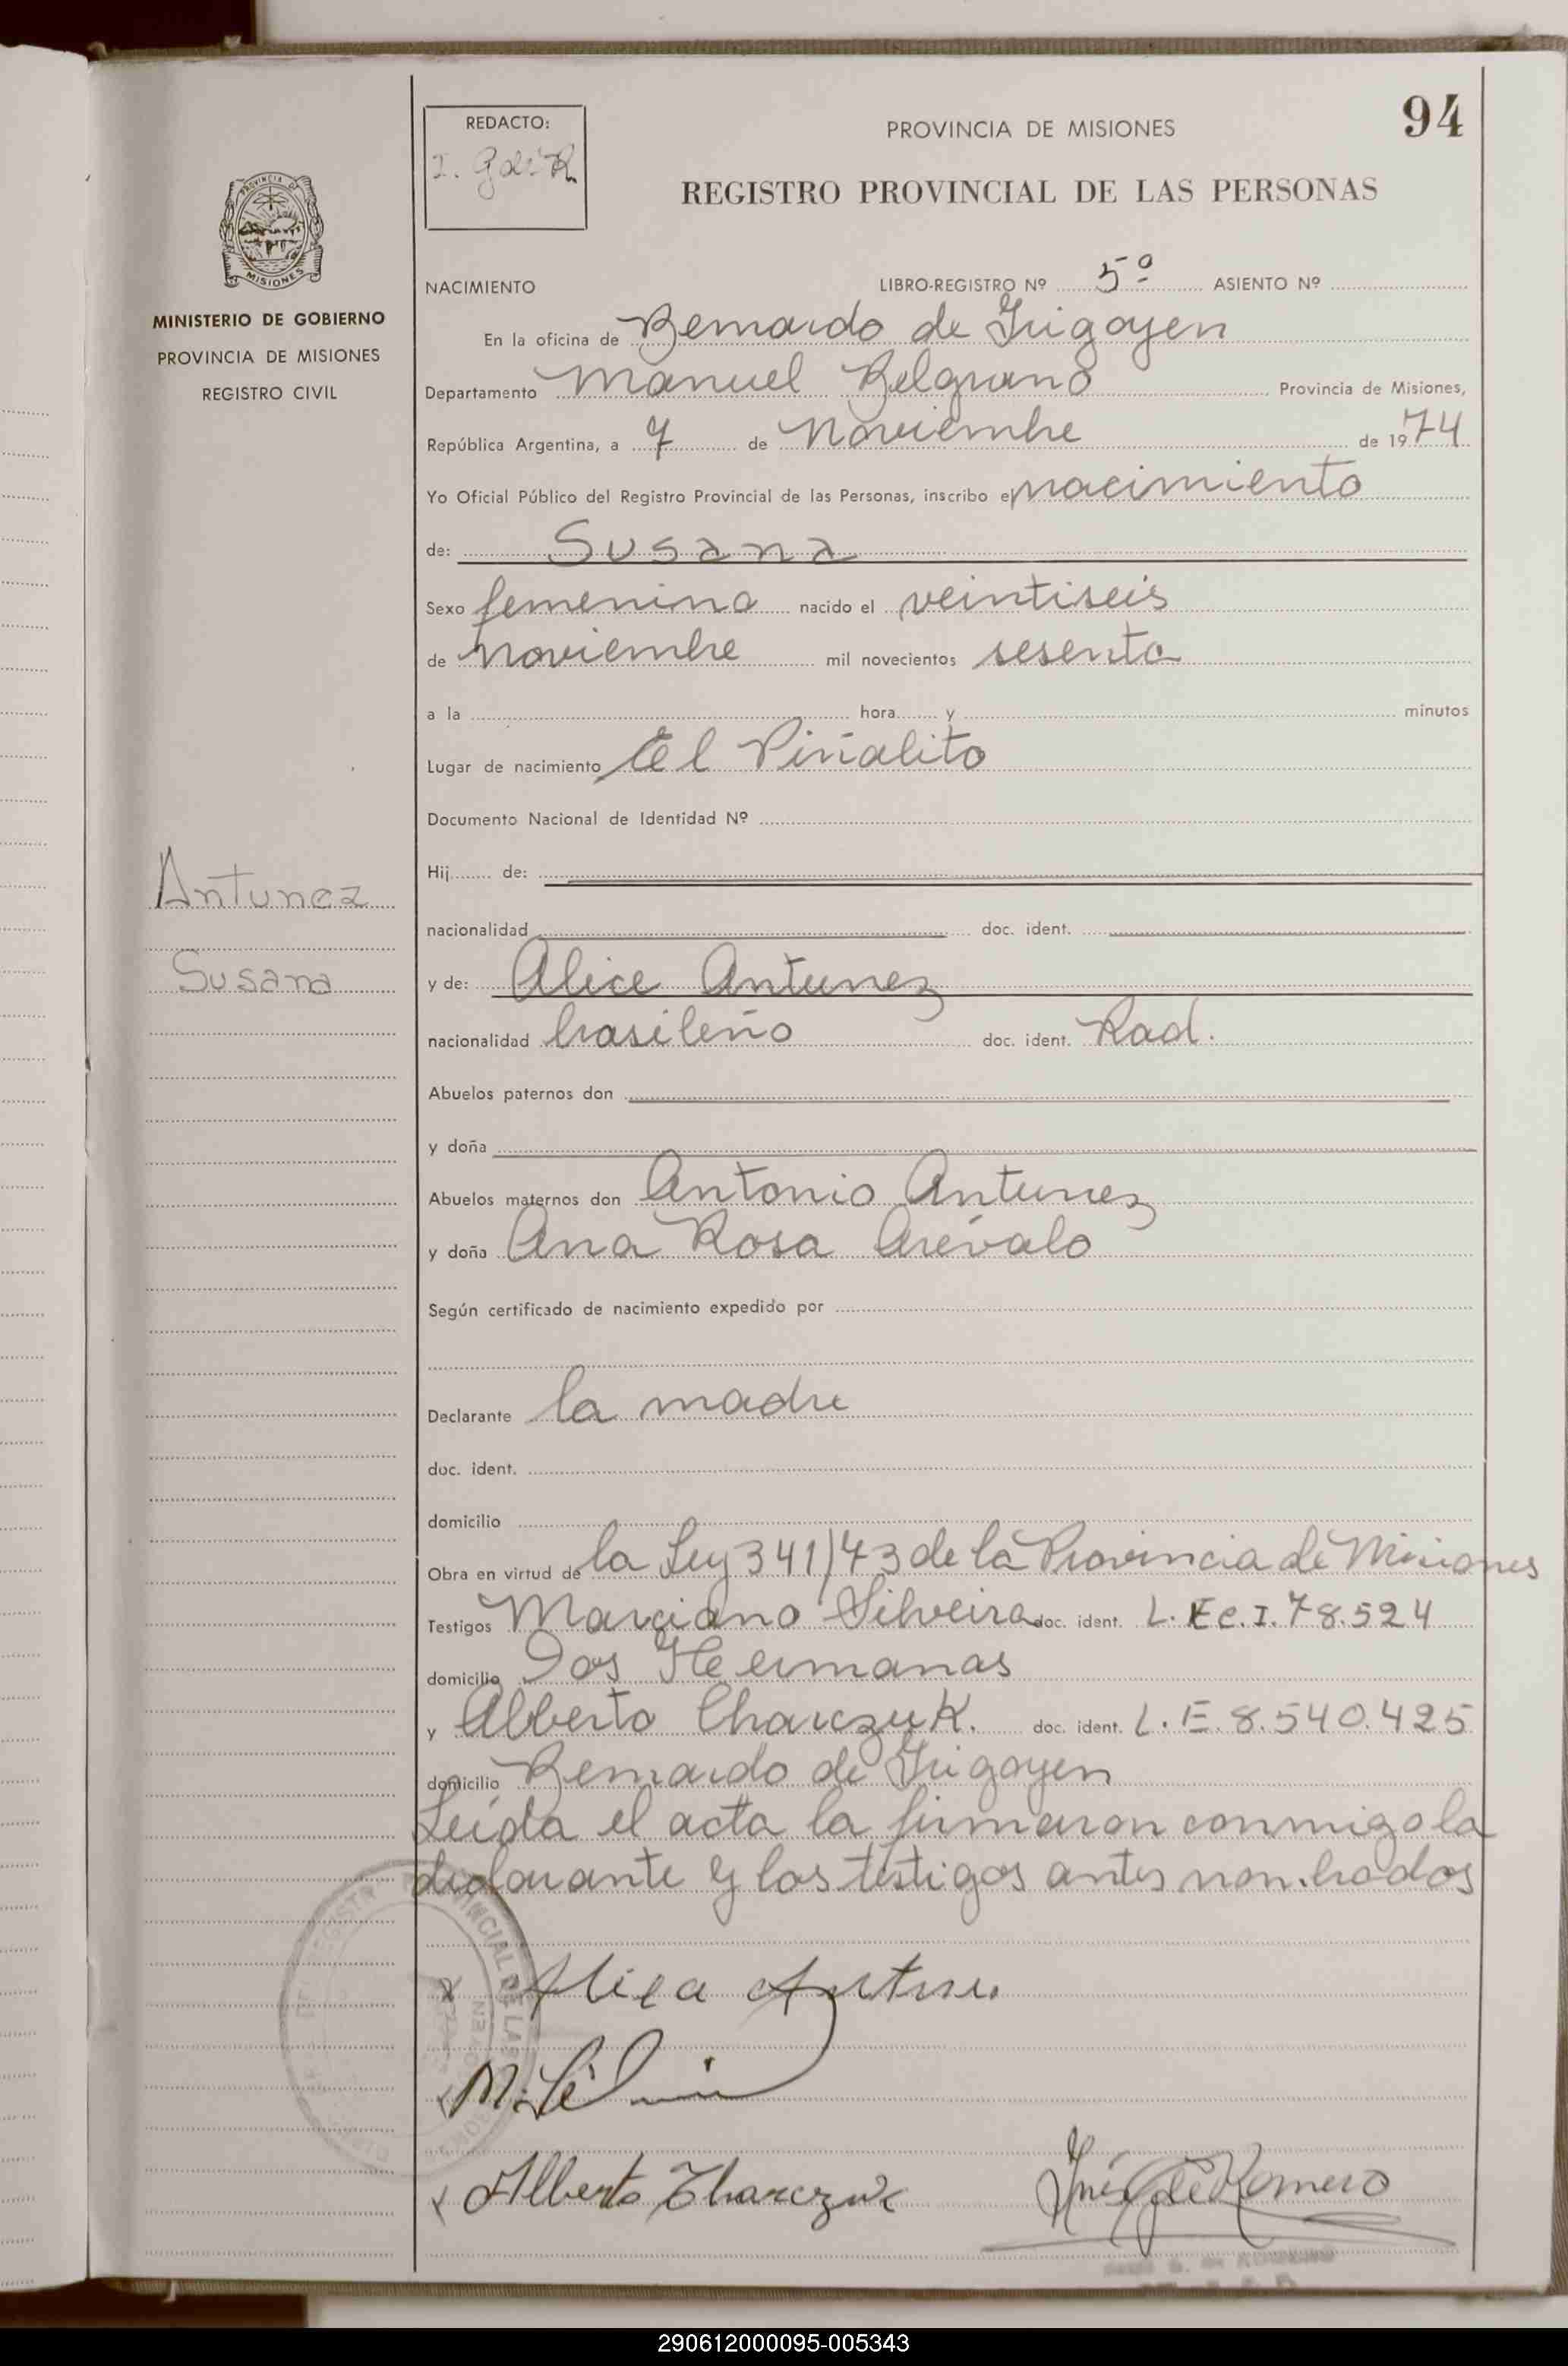 94
REDACTO:
PROVINCIA DE MISIONES
REGISTRO PROVINCIAL DE LAS PERSONAS
PROVINCIA DE
MISIONES
MINISTERIO DE GOBIERNO
PROVINCIA DE MISIONES
REGISTRO CIVIL
NACIMIENTO LIBRO-REGISTRO Nº 5º ASIENTO Nº
En la oficina de Bernardo de Irigoyen
Departamento Manuel Belgrano Provincia de Misiones,
República Argentina, a 7 de Noviembre de 1974
Yo Oficial Público del Registro Provincial de las Personas, inscribo el nacimiento
de: Susana
Sexo femenino nacido el veintiseis
de noviembre mil novecientos sesenta
a la hora y minutos
Lugar de nacimiento El Piñalito
Documento Nacional de Identidad Nº
Hij de:
Antunez
nacionalidad doc. ident.
Susana
y de: Alice Antunez
nacionalidad brasileño doc. ident. Rad.
Abuelos paternos don
y doña
Abuelos maternos don Antonio Antunez
y doña Ana Rosa Arévalo
Según certificado de nacimiento expedido por
Declarante la madre
doc. ident.
domicilio
Obra en virtud de la Ley 341/43 de la Provincia de Misiones
Testigos Marciano Silveira doc. ident. L. E C.I. 78.524
domicilio Dos Hermanas
y Alberto Charczuk. doc. ident. L. E. 8.540.425
domicilio Bernardo de Irigoyen
Leída el acta la firmaron conmigo la
declarante y los testigos antes nombrados
Alberto Tharczuk
Inés G de Romero
290612000095-005343